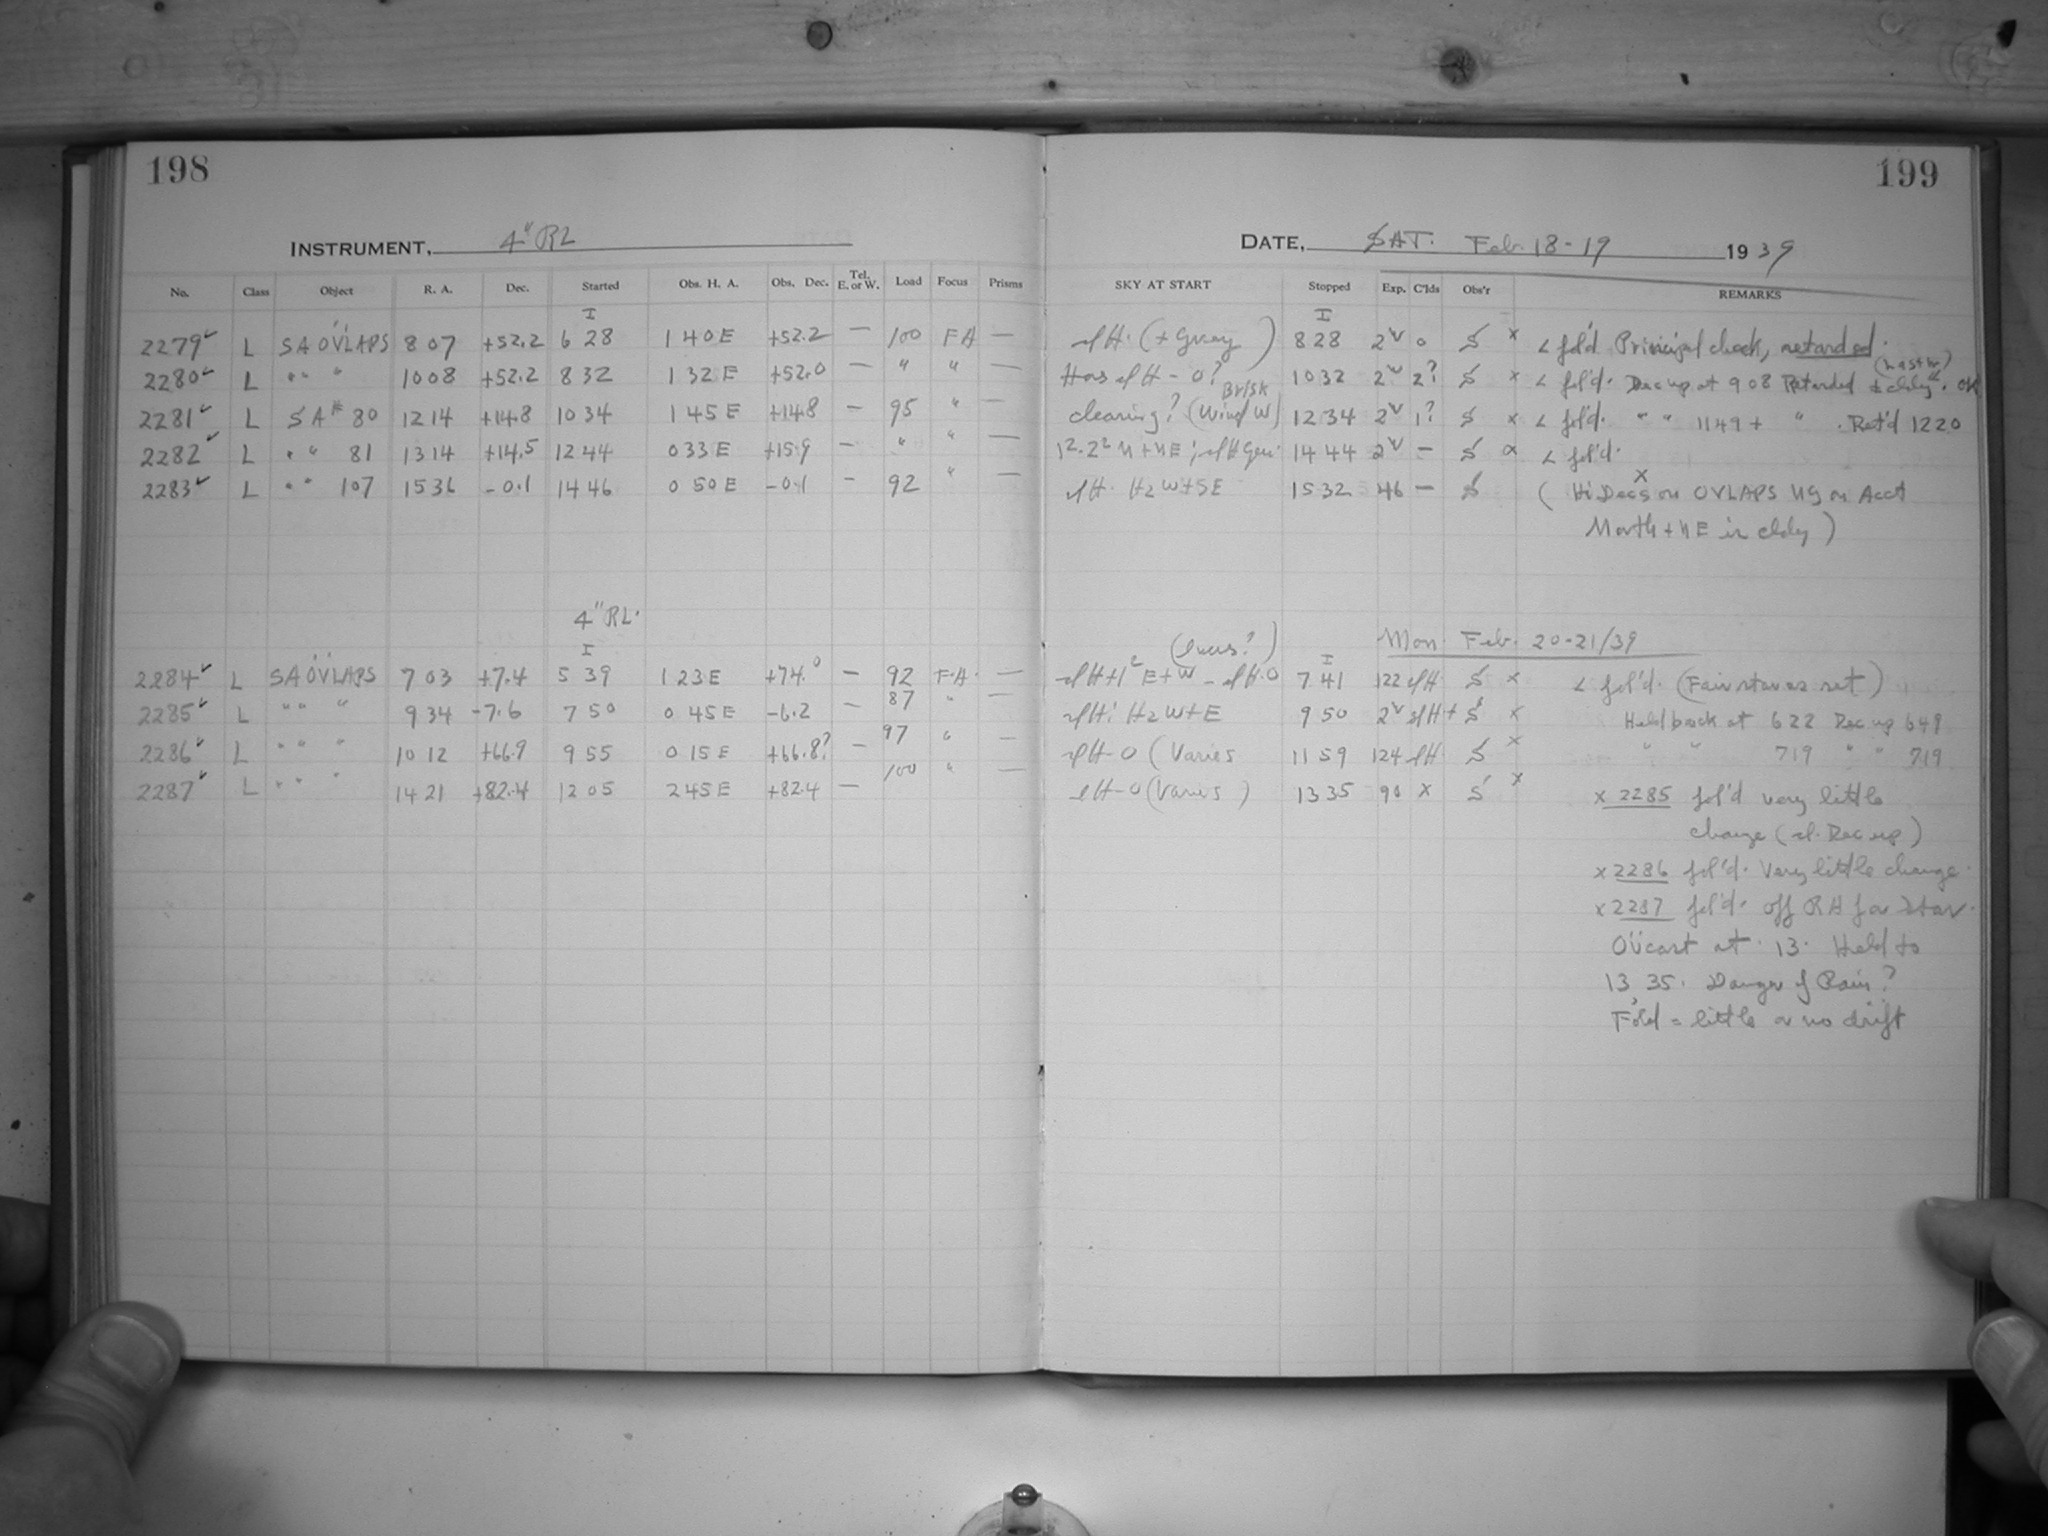 198
INSTRUMENT, 4" RL
No. Class Object R. A. Dec. Started Obs. H. A. Obs. Dec. Tel. E. or W. Load Focus Prisms
I
2279 L SA OVLAPS 8 07 +52.2 6 28 1 40 E +52.2 — 100 FA —
2280 L " " " 10 08 +52.2 8 32 1 32 E +52.0 — " " —
2281 L SA # 80 12 14 +14.8 10 34 1 45 E +14.8 — 95 " —
2282 L " " 81 13 14 +14.5 12 44 0 33 E +15.9 — " " —
2283 L " " 107 15 36 -0.1 14 46 0 50 E -0.1 — 92 " —
4" RL.
I
2284 L SA OVLAPS 7 03 +7.4 5 39 1 23 E +74.0 — 92 F.A. —
2285 L " " " 9 34 -7.6 7 50 0 45 E -6.2 — 87 " —
2286 L " " " 10 12 +66.9 9 55 0 15 E +66.8? — 97 " —
2287 L " " " 14 21 +82.4 12 05 2 45 E +82.4 — 100 " —
199
DATE, SAT. Feb. 18-19 1939
SKY AT START Stopped Exp. C'lds Obs'r REMARKS
I
(+ Gray) 8 28 2 0 S x < fol'd Principal check, retarded.
(Last hr)
Has H - 0? 10 32 2 2? S x < fol'd. Dec up at 9 08 Retarded OK
Brisk
clearing? (Wind W) 12 34 2 1? S x < fol'd. " " 11 49 + " . Ret'd 12 20
N + NE ; 14 44 2 — S < fol'd.
Hz W + SE 15 32 46 — S ( Hi Decs on OVLAPS NG on Acct
x
North + NE in cldy )
Mon. Feb. 20-21/39
I
E + W 7 41 122 S x < fol'd. (Fair star as set)
Hz W + E 9 50 2 S x Held back at 6 22 Dec up 6 49
(Varies 11 59 124 S x " " 7 19 " " 7 19
(Varies) 13 35 90 x S x x 2285 fol'd very little
change ( Dec up)
x 2286 fol'd. Very little change.
x 2287 fol'd. off RA for star.
Ovcast at 13. Held to
13 35. Danger of Rain?
Fol'd = little or no drift